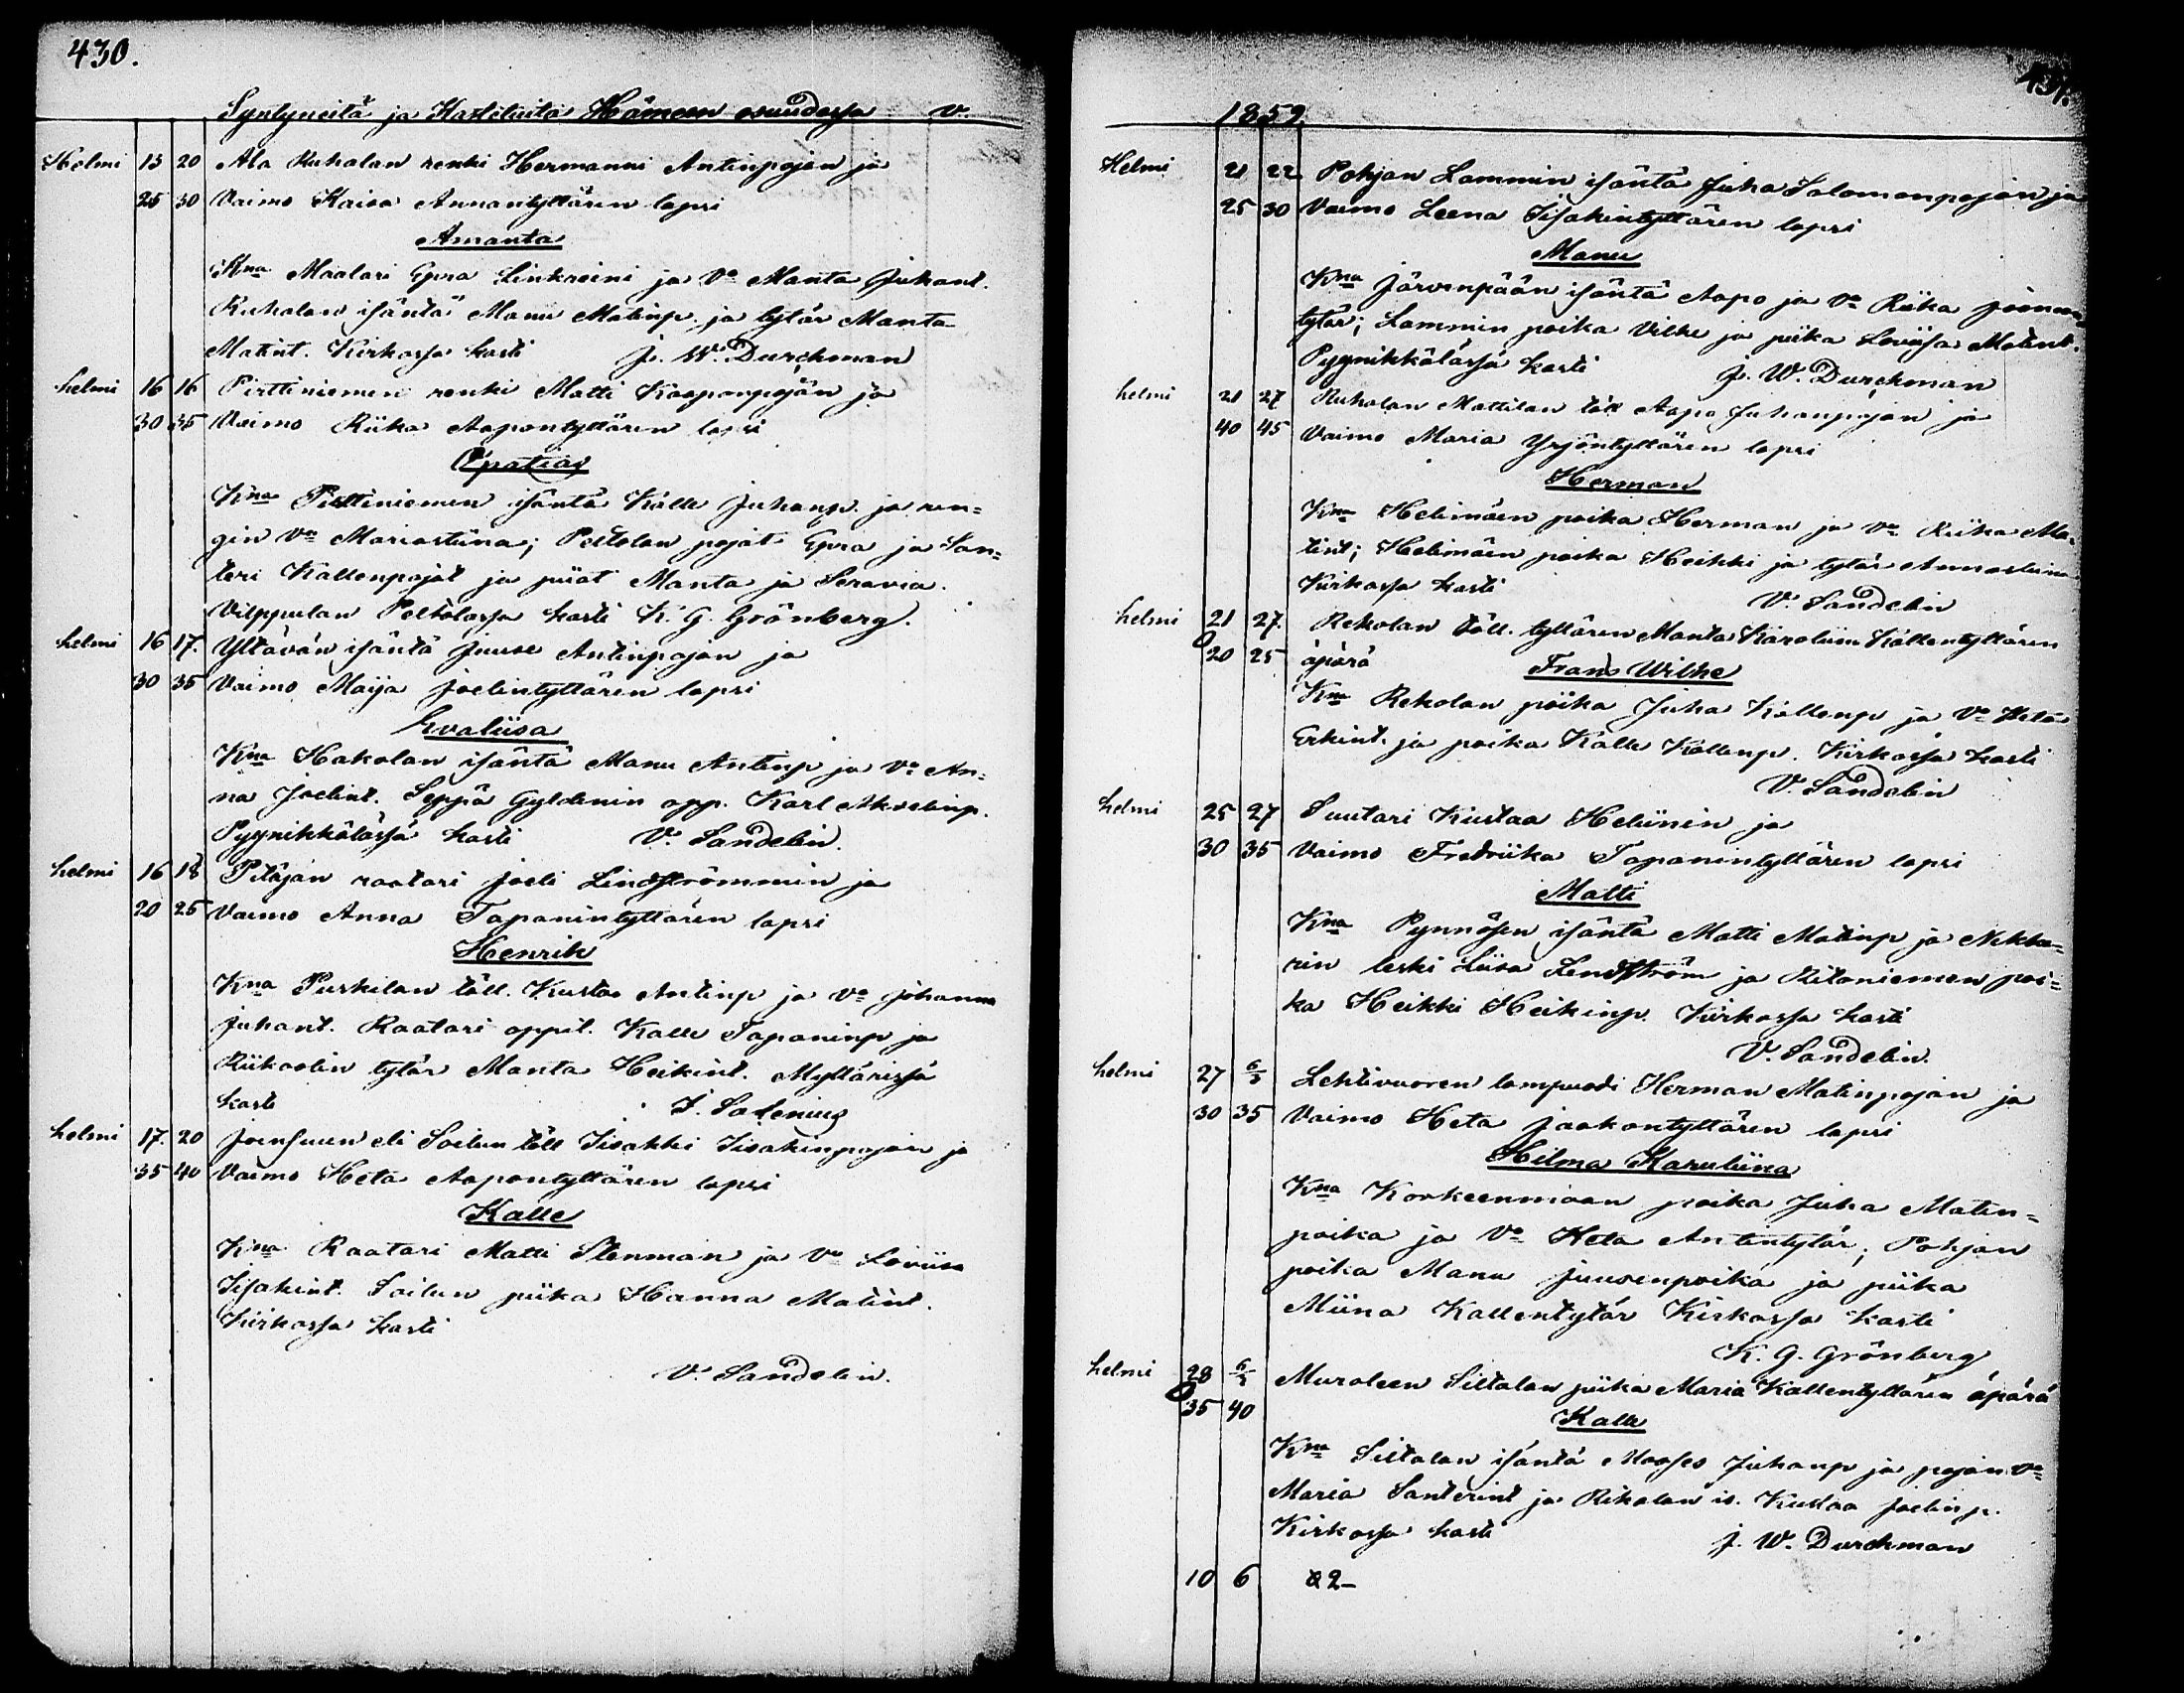 430.
Syntyneitä ja Kastetuita Hämeen osuudessa v.
Helmi 13 20 Ala Ruhalan renki Hermanni Antinpojan ja
25 30 Vaimo Kaisa Annantyttären lapsi
Amanta
Kna Maalari Epra Linkreini ja Vo Manta Juhant.
Ruhalan isäntä Manu Matinp. ja tytär Manta
Matint. Kirkossa kasti J. W. Durchman
helmi 16 16 Pirttiniemen renki Matti Kaaponpojan ja
30 35 Vaimo Riika Aapontyttären lapsi
Opatias
Kna Pirttiniemen isäntä Kalle Juhanp. ja ren=
gin Vo Mariastiina; Peltolan pojat Epra ja San=
teri Kallenpojat ja piiat Manta ja Seravia.
Vilppulan Peltolassa kasti K. G. Grönberg.
helmi 16 17. Yltävän isäntä Juuse Antinpojan ja
30 35 Vaimo Maija Joelintyttären lapsi
Evaliisa
Kna Hakolan isäntä Manu Antinp ja Vo An=
na Joelint. Seppä Gyldenin opp. Karl Akselinp.
Pyynikkälässä kasti V. Sandelin.
helmi 16 18 Pitäjän raatari Joeli Lindströmmin ja
20 25 Vaimo Anna Tapanintyttären lapsi
Henrik
Kna Purkilan täll. Kustaa Antinp ja Vo Johanna
Juhant. Raatari oppil. Kalle Tapaninp ja
Riikoolin tytär Manta Heikint. Myllärissä
kasti J. Salenius
helmi 17. 20 Joensuun eli Soilun töll Iisakki Iisakinpojan ja
35 40 Vaimo Heta Aapontyttären lapsi
Kalle
Kna Raatari Matti Stenman ja Vo Loviisa
Iisakint. Soilun piika Hanna Matint.
Kirkossa kasti
V. Sandelin.
431.
1859.
Helmi 21 22 Pohjan Lammin isäntä Juha Salomonpojan ja
25 30 Vaimo Leena Iisakintyttären lapsi
Manu
Kna Järvenpään isäntä Aapo ja Vo Riika
tytär; Lammin poika Vilke ja piika Loviisa Matint.
Pyynikkälässä kasti J. W. Durchman
helmi 21 27 Ruhalan Mattilan töll Aapo Juhanpojan ja
40 45 Vaimo Maria Yrjöntyttären lapsi
Herman
Kna Helimäen poika Herman ja Vo Riika Ma=
tint; Helimäen poika Heikki ja tytär Annastiina
Kirkossa kasti V. Sandelin
helmi 21 27. Rekolan töll. tyttären Manta Karoliin Kallentyttären
20 25 äpärä Frans Wilhe
Kna Rekolan poika Juha Kallenp ja Vo Heta
Erkint. ja poika Kalle Kallenp. Kirkossa kasti
V. Sandelin
helmi 25 27 Suutari Kustaa Heliinin ja
30 35 Vaimo Fredriika Tapanintyttären lapsi
Matti
Kna Pynnösen isäntä Matti Matinp ja Nikka=
rin leski Liisa Lendström ja Ritoniemen poi=
ka Heikki Heikinp. Kirkossa kasti
V. Sandelin.
helmi 27 6/3 Lehtivuoren lampuodi Herman Matinpojan ja
30 35 Vaimo Heta Jaakontyttären lapsi
Hilma Karuliina
Kna Korkeenmaan poika Juha Matin=
poika ja Vo Heta Antintytär; Pohjan
poika Manu Juusenpoika ja piika
Miina Kallentytär Kirkossa kasti
K. G. Grönberg
helmi 28 6/3 Muroleen Siltalan piika Maria Kallentyttären äpärä
35 40
Kalle
Kna Siltalan isäntä Mooses Juhanp ja pojan Vo
Maria Santerint ja Rikalan is. Kustaa Joelinp.
Kirkossa kasti J. W. Durchman
10 6 2-